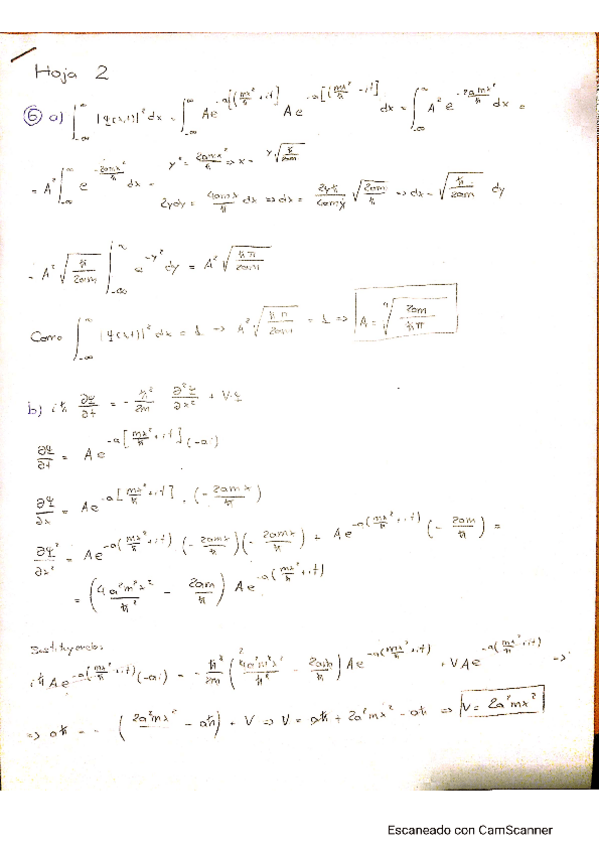 Hoja 2
⑥ a) ∫_{-∞}^{∞} |Ψ(x,t)|² dx = ∫_{-∞}^{∞} A e^{-a[(mx²/ħ)+it]} A e^{-a[(mx²/ħ)-it]} dx = ∫_{-∞}^{∞} A² e^{-2amx²/ħ} dx =
= A² ∫_{-∞}^{∞} e^{-2amx²/ħ} dx = y² = 2amx²/ħ => x = y √(ħ/2am)
2y dy = 4amx/ħ dx => dx = 2yħ/4amy √(2am/ħ) => dx = √(ħ/2am) dy
= A² √(ħ/2am) ∫_{-∞}^{∞} e^{-y²} dy = A² √(ħπ/2am)
Como ∫_{-∞}^{∞} |Ψ(x,t)|² dx = 1 -> A² √(ħπ/2am) = 1 => A = ⁴√(2am/ħπ)
b) iħ ∂Ψ/∂t = - ħ²/2m ∂²Ψ/∂x² + V·Ψ
∂Ψ/∂t = A e^{-a[mx²/ħ+it]} (-ai)
∂Ψ/∂x = A e^{-a[mx²/ħ+it]} · (-2amx/ħ)
∂Ψ²/∂x² = A e^{-a(mx²/ħ+it)} (-2amx/ħ)(-2amx/ħ) + A e^{-a(mx²/ħ+it)} (-2am/ħ) =
= (4a²m²x²/ħ² - 2am/ħ) A e^{-a(mx²/ħ+it)}
Sustituyendo:
iħ A e^{-a(mx²/ħ+it)} (-ai) = - ħ²/2m (4a²m²x²/ħ² - 2am/ħ) A e^{-a(mx²/ħ+it)} + V A e^{-a(mx²/ħ+it)} =>
=> aħ = - (2a²mx² - aħ) + V => V = aħ + 2a²mx² - aħ => V = 2a²mx²
Escaneado con CamScanner